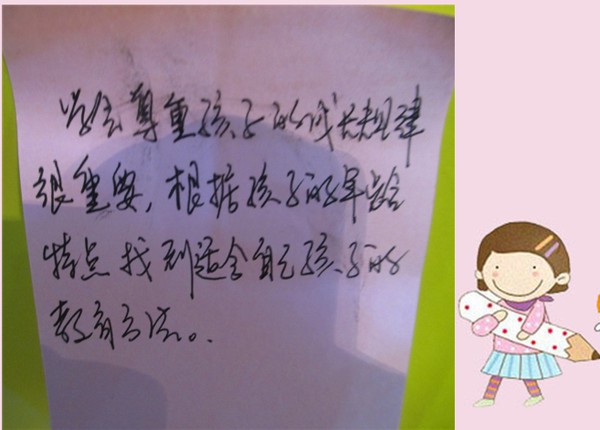 学会尊重孩子的成长规律
很重要,根据孩子的年龄
特点找到适合自己孩子的
教育方法。